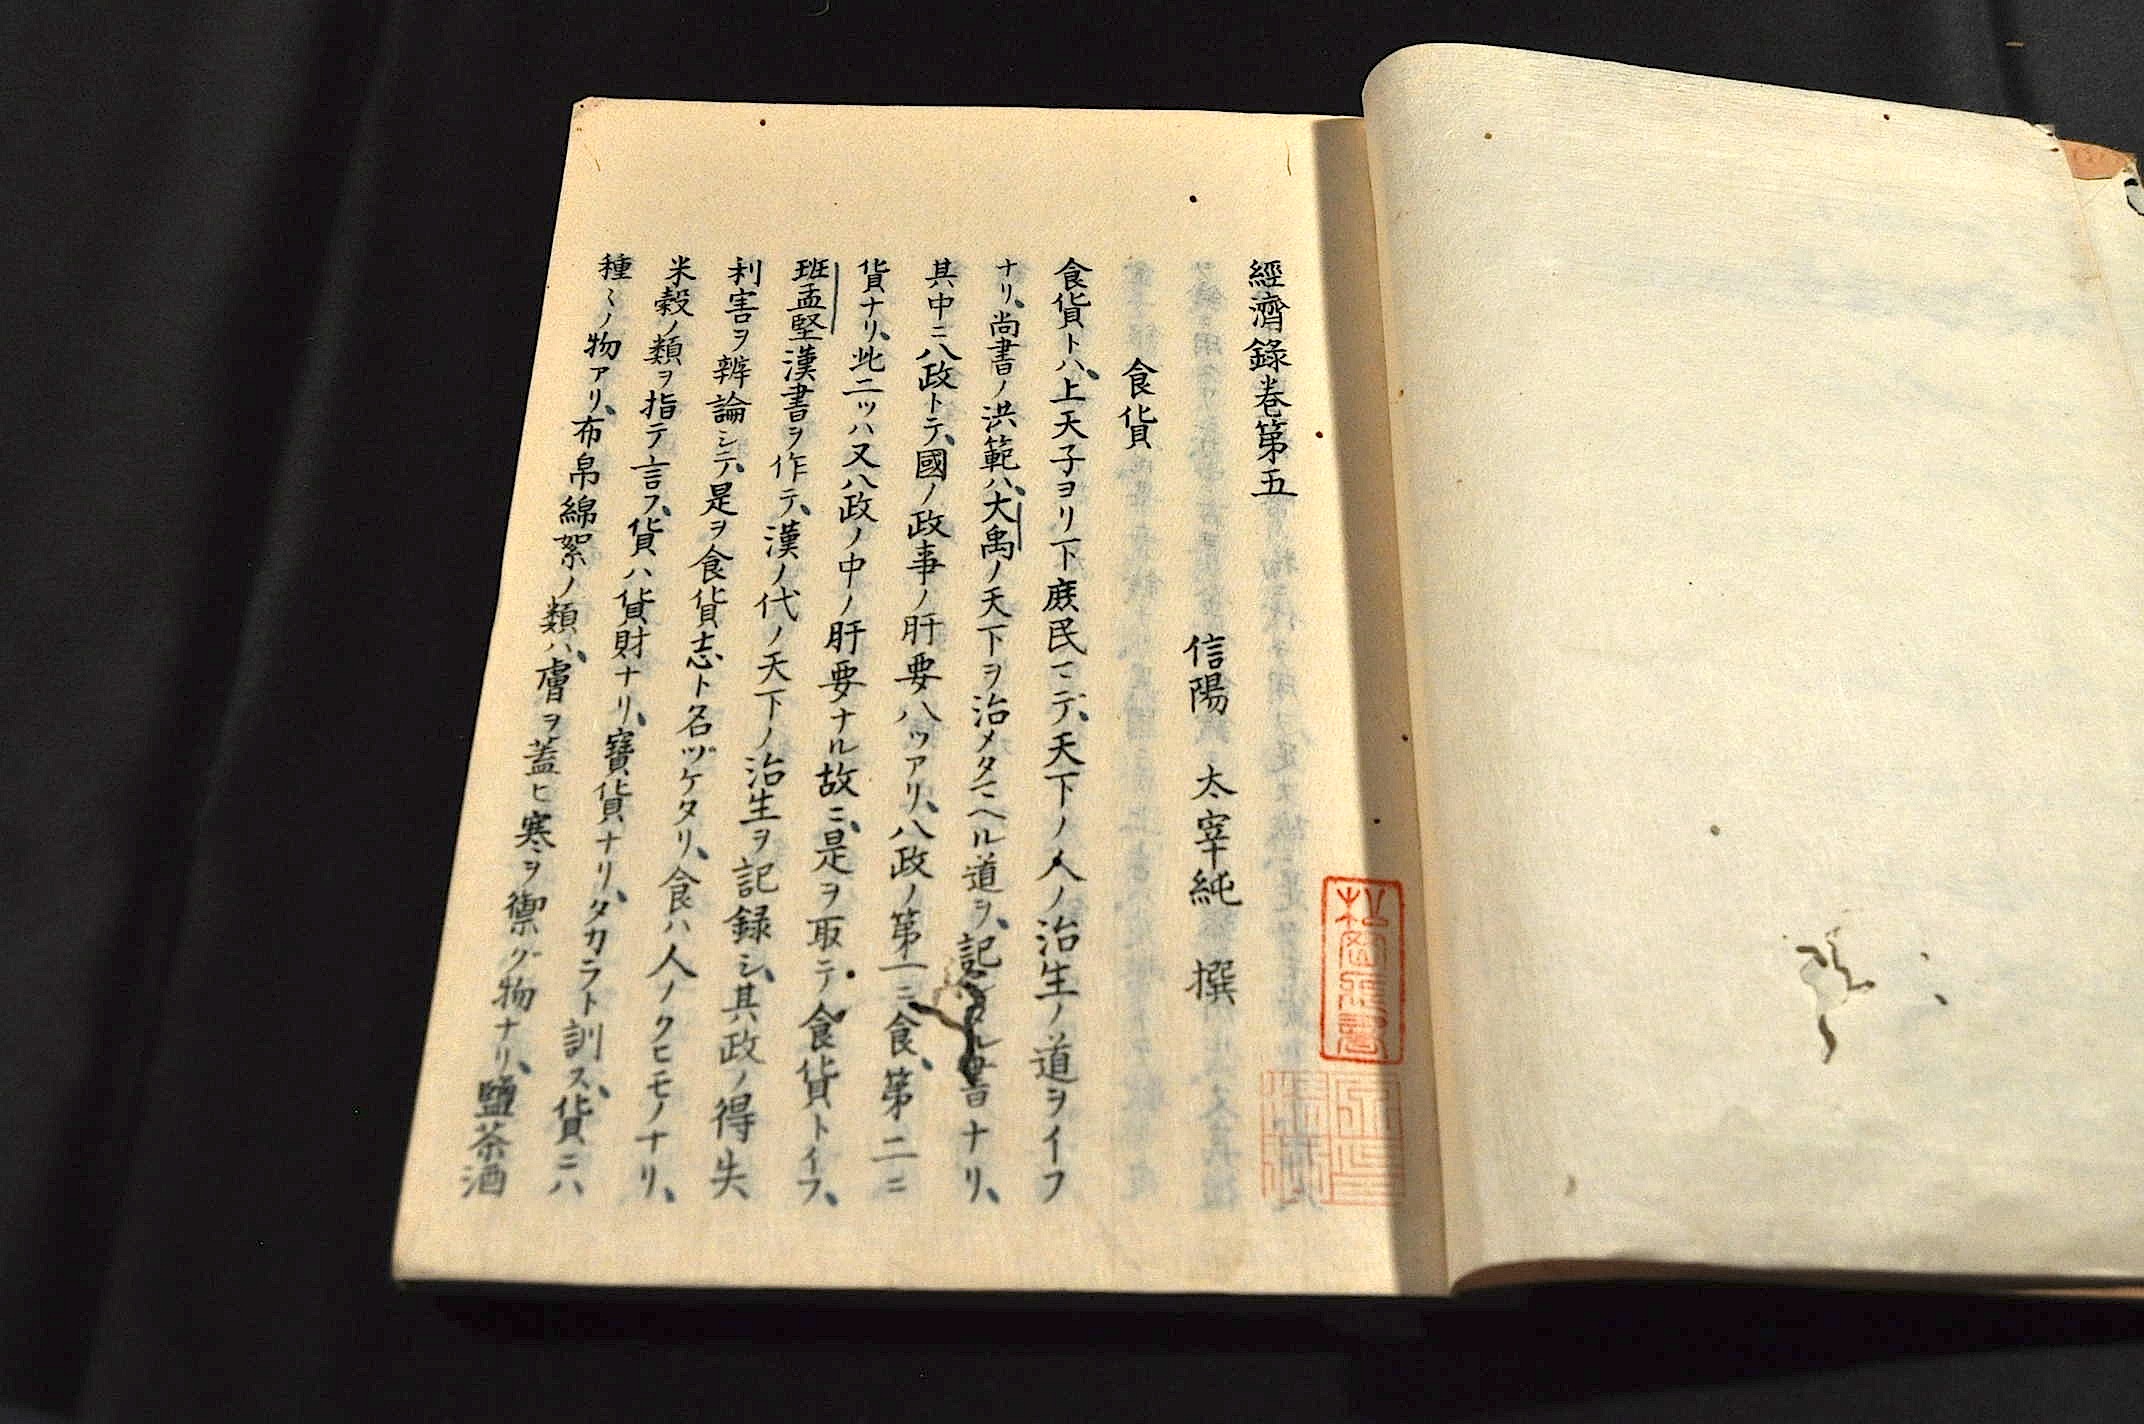 經濟錄卷第五
信陽 太宰純 撰
食貨
食貨トハ、上天子ヨリ下庶民マデ、天下ノ人ノ治生ノ道ヲイフ
ナリ、尚書ノ洪範ハ、大禹ノ天下ヲ治メタマヘル道ヲ、記 ル書ナリ、
其中ニ八政トテ、國ノ政事ノ肝要八ツアリ、八政ノ第一ニ食、第二ニ
貨ナリ、此二ツハ又八政ノ中ノ肝要ナル故ニ、是ヲ取テ食貨トイフ、
班孟堅漢書ヲ作テ、漢ノ代ノ天下ノ治生ヲ記録シ、其政ノ得失
利害ヲ辨論シテ、是ヲ食貨志ト名ヅケタリ、食ハ人ノクヒモノナリ、
米穀ノ類ヲ指テ言フ、貨ハ貨財ナリ、寶貨ナリ、タカラト訓ス、貨ニハ
種〻ノ物アリ、布帛綿絮ノ類ハ、膚ヲ蓋ヒ寒ヲ禦グ物ナリ、鹽茶酒